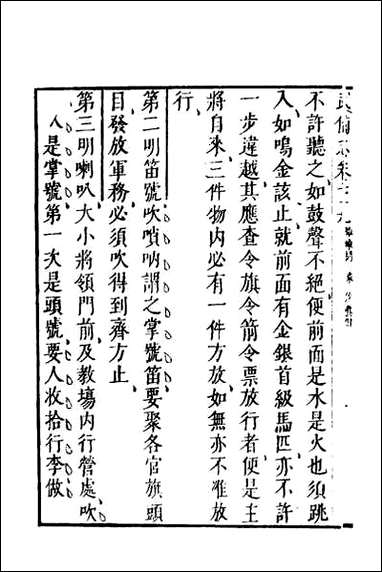 武備志卷六十九
不許聽之如鼓聲不絕便前面是水是火也須跳
入如鳴金該止就前面有金銀首級馬匹亦不許
一步違越其應查令旗令箭令票放行者便是主
將自來三件物內必有一件方放如無亦不准放
行
第二明笛號吹嗩吶謂之掌號笛要聚各官旗頭
目發放軍務必須吹得到齊方止
第三明喇叭大小將領門前及教場內行營處吹
人是掌號第一次是頭號要人收拾行李做